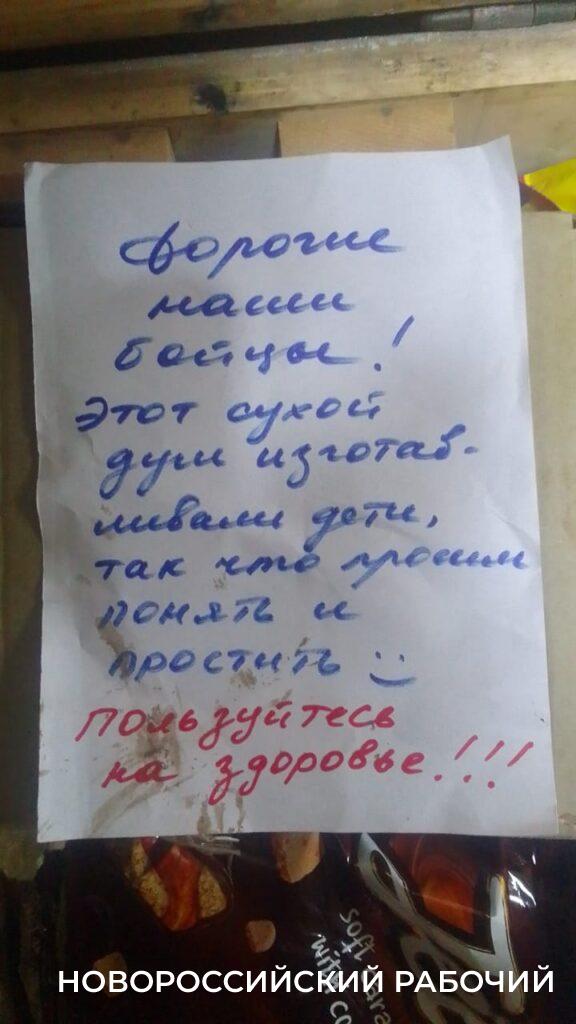 Дорогие
наши
бойцы!
Этот сухой
душ изготав-
ливали дети,
так что просим
понять и
простить :)
Пользуйтесь
на здоровье!!!
soft
with
НОВОРОССИЙСКИЙ РАБОЧИЙ